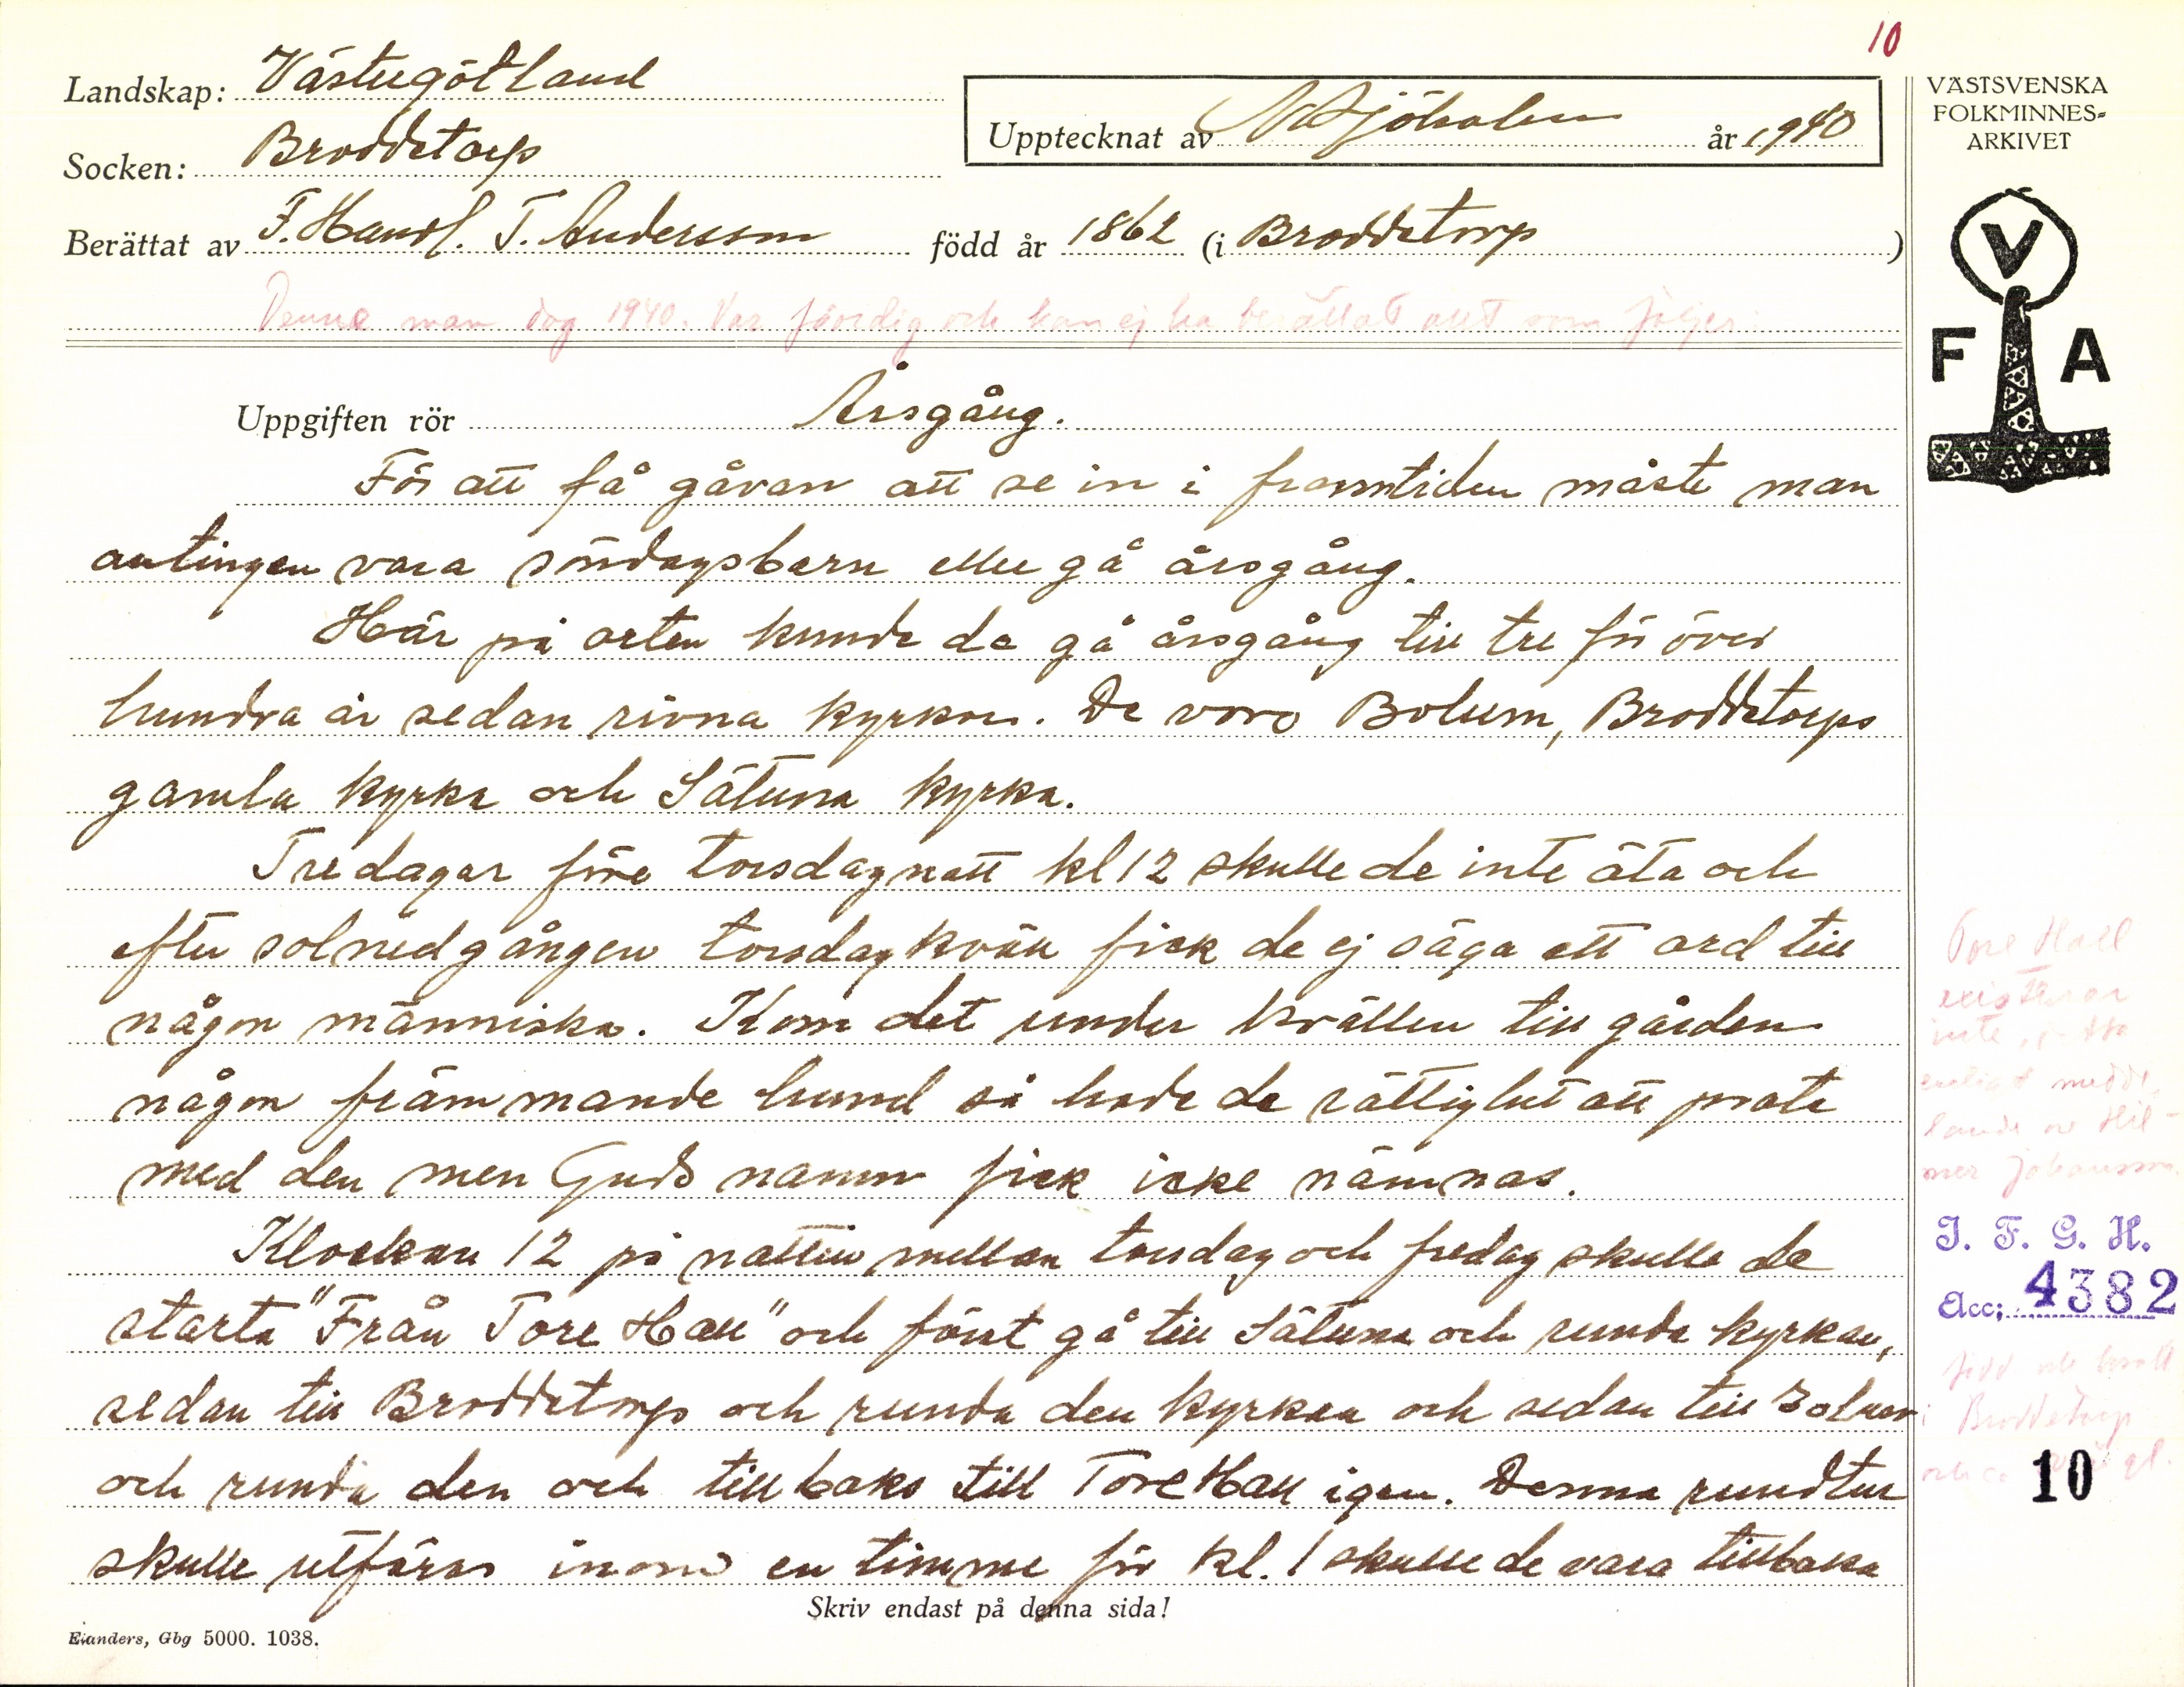 10
Landskap: Västergötland
Socken: Broddetorp
Upptecknat av år 1940
Berättat av F. Handl. T. Andersson född år 1862 (i Broddetorp)
Denne man dog 1940. Var färdig och kan ej ha berättat allt som följer.
Uppgiften rör Årsgång.
För att få gåvan att se in i framtiden måste man
antingen vara söndagsbarn eller gå årsgång.
Här på orten kunde de gå årsgång till tre för över
hundra år sedan rivna kyrkor. De voro Bolum, Broddetorps
gamla kyrka och Sätuna kyrka.
Tre dagar före torsdagnatt kl 12 skulle de inte äta och
efter solnedgången torsdagkväll fick de ej säga ett ord till
någon människa. Kom det under kvällen till gården
någon främmande hund så hade de rättighet att prata
med den men Guds namn fick icke nämnas.
Klockan 12 på natten mellan torsdag och fredag skulle de
starta "Från Tore Hall" och först gå till Sätuna och runda kyrkan,
sedan till Broddetorp och runda den kyrkan och sedan till Bolum
och runda den och tillbaks till Tore Hall igen. Denna rundtur
skulle utföras inom en timme för kl. 1 skulle de vara tillbaka
Skriv endast på denna sida!
Elanders, Gbg 5000. 1038.
VÄSTSVENSKA
FOLKMINNES-
ARKIVET
V
F A
Tore Hall
existerar
inte
enligt medde-
lande av Hil-
mer Johansson
I. F. G. H.
Acc: 4382
född och
i Broddetorp
och
10